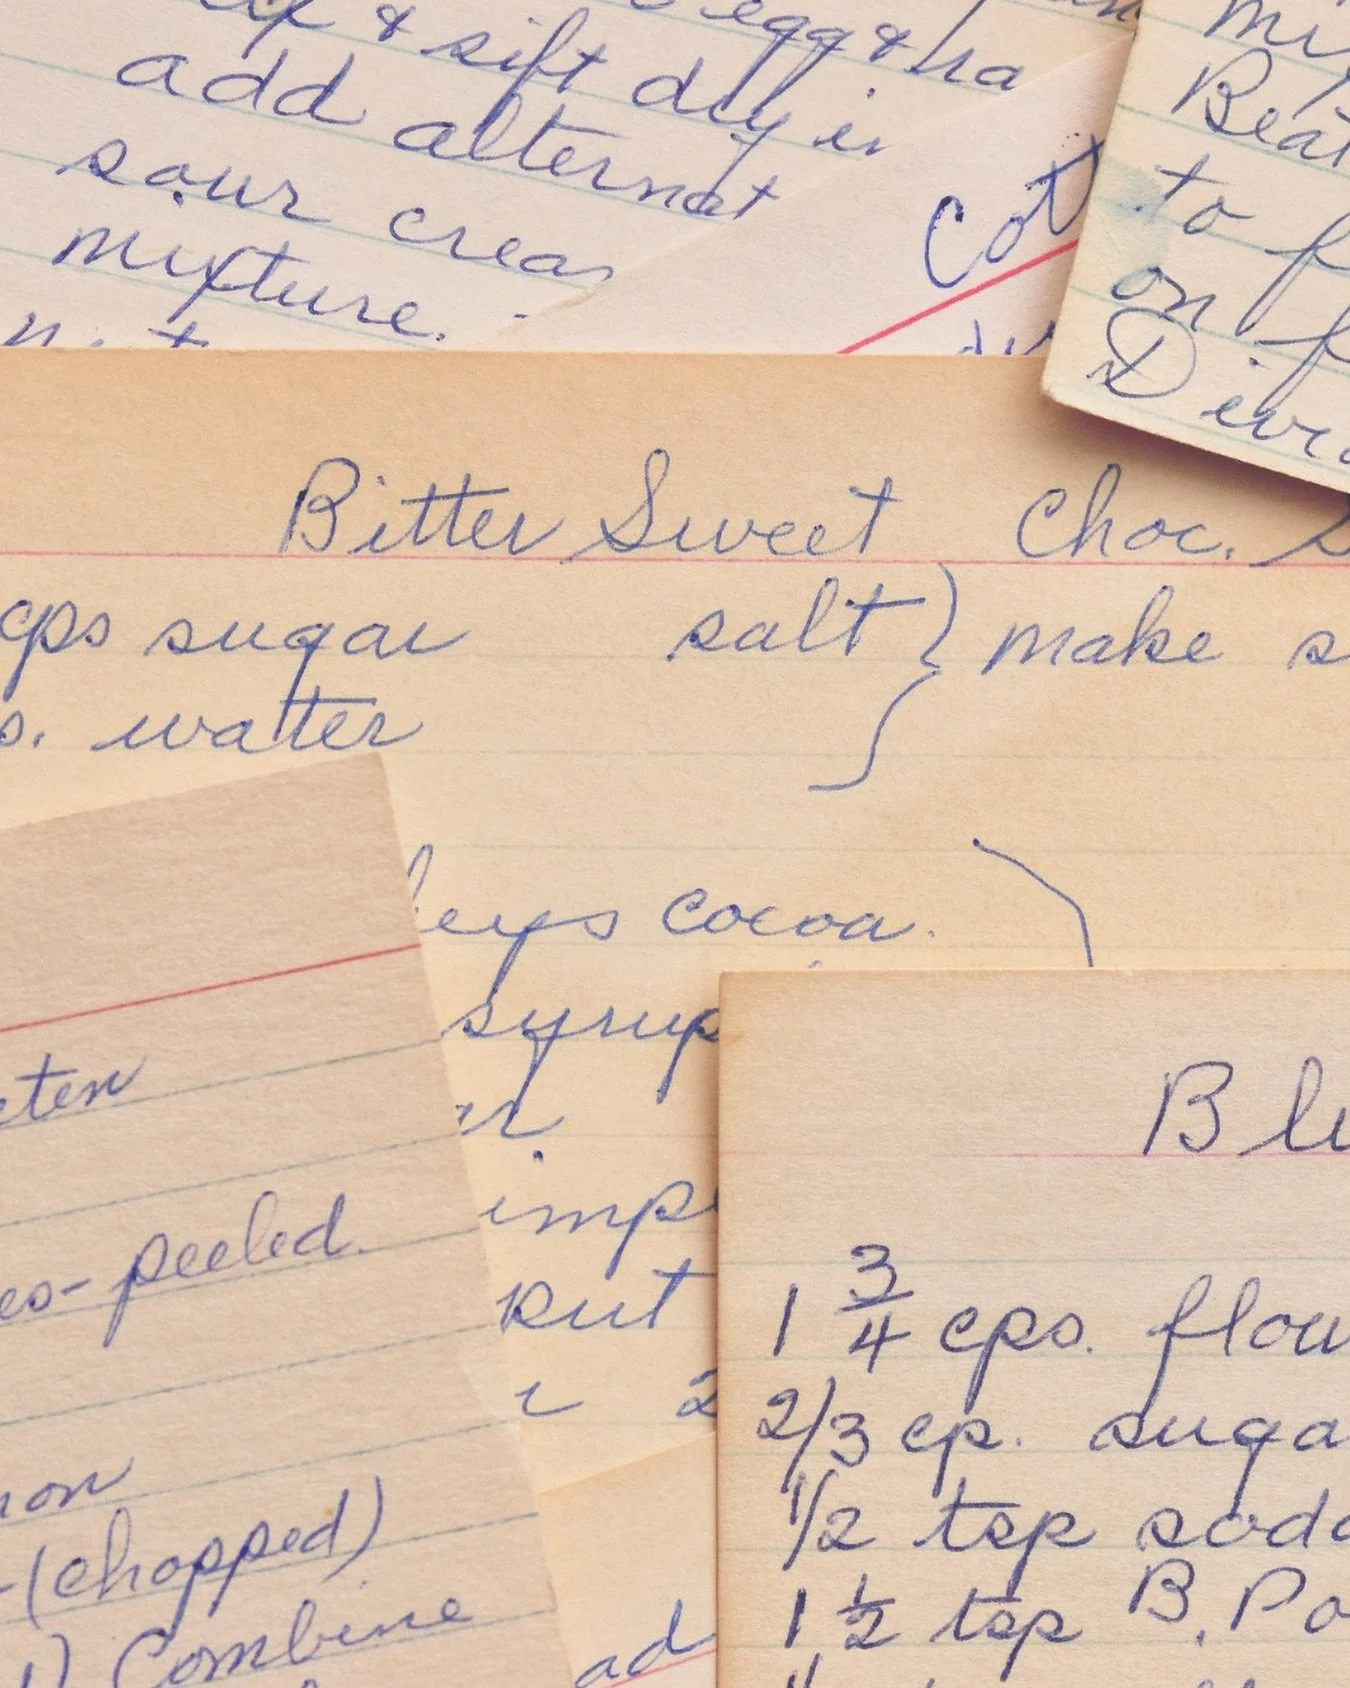 & sift dry in
egg &
add alternat
sour crea
mixture.
Cot
Beat
to f
on f
Divi
Bitter Sweet Choc. S
cps sugar salt } make s
s. water
leys cocoa.
syrup
ar.
imp
put
2
eten
es- peeled
non
-(chopped)
1) Combine
ad
Blu
1 3/4 cps. flou
2/3 cp. suga
1/2 tsp soda
1 1/2 tsp B. Po